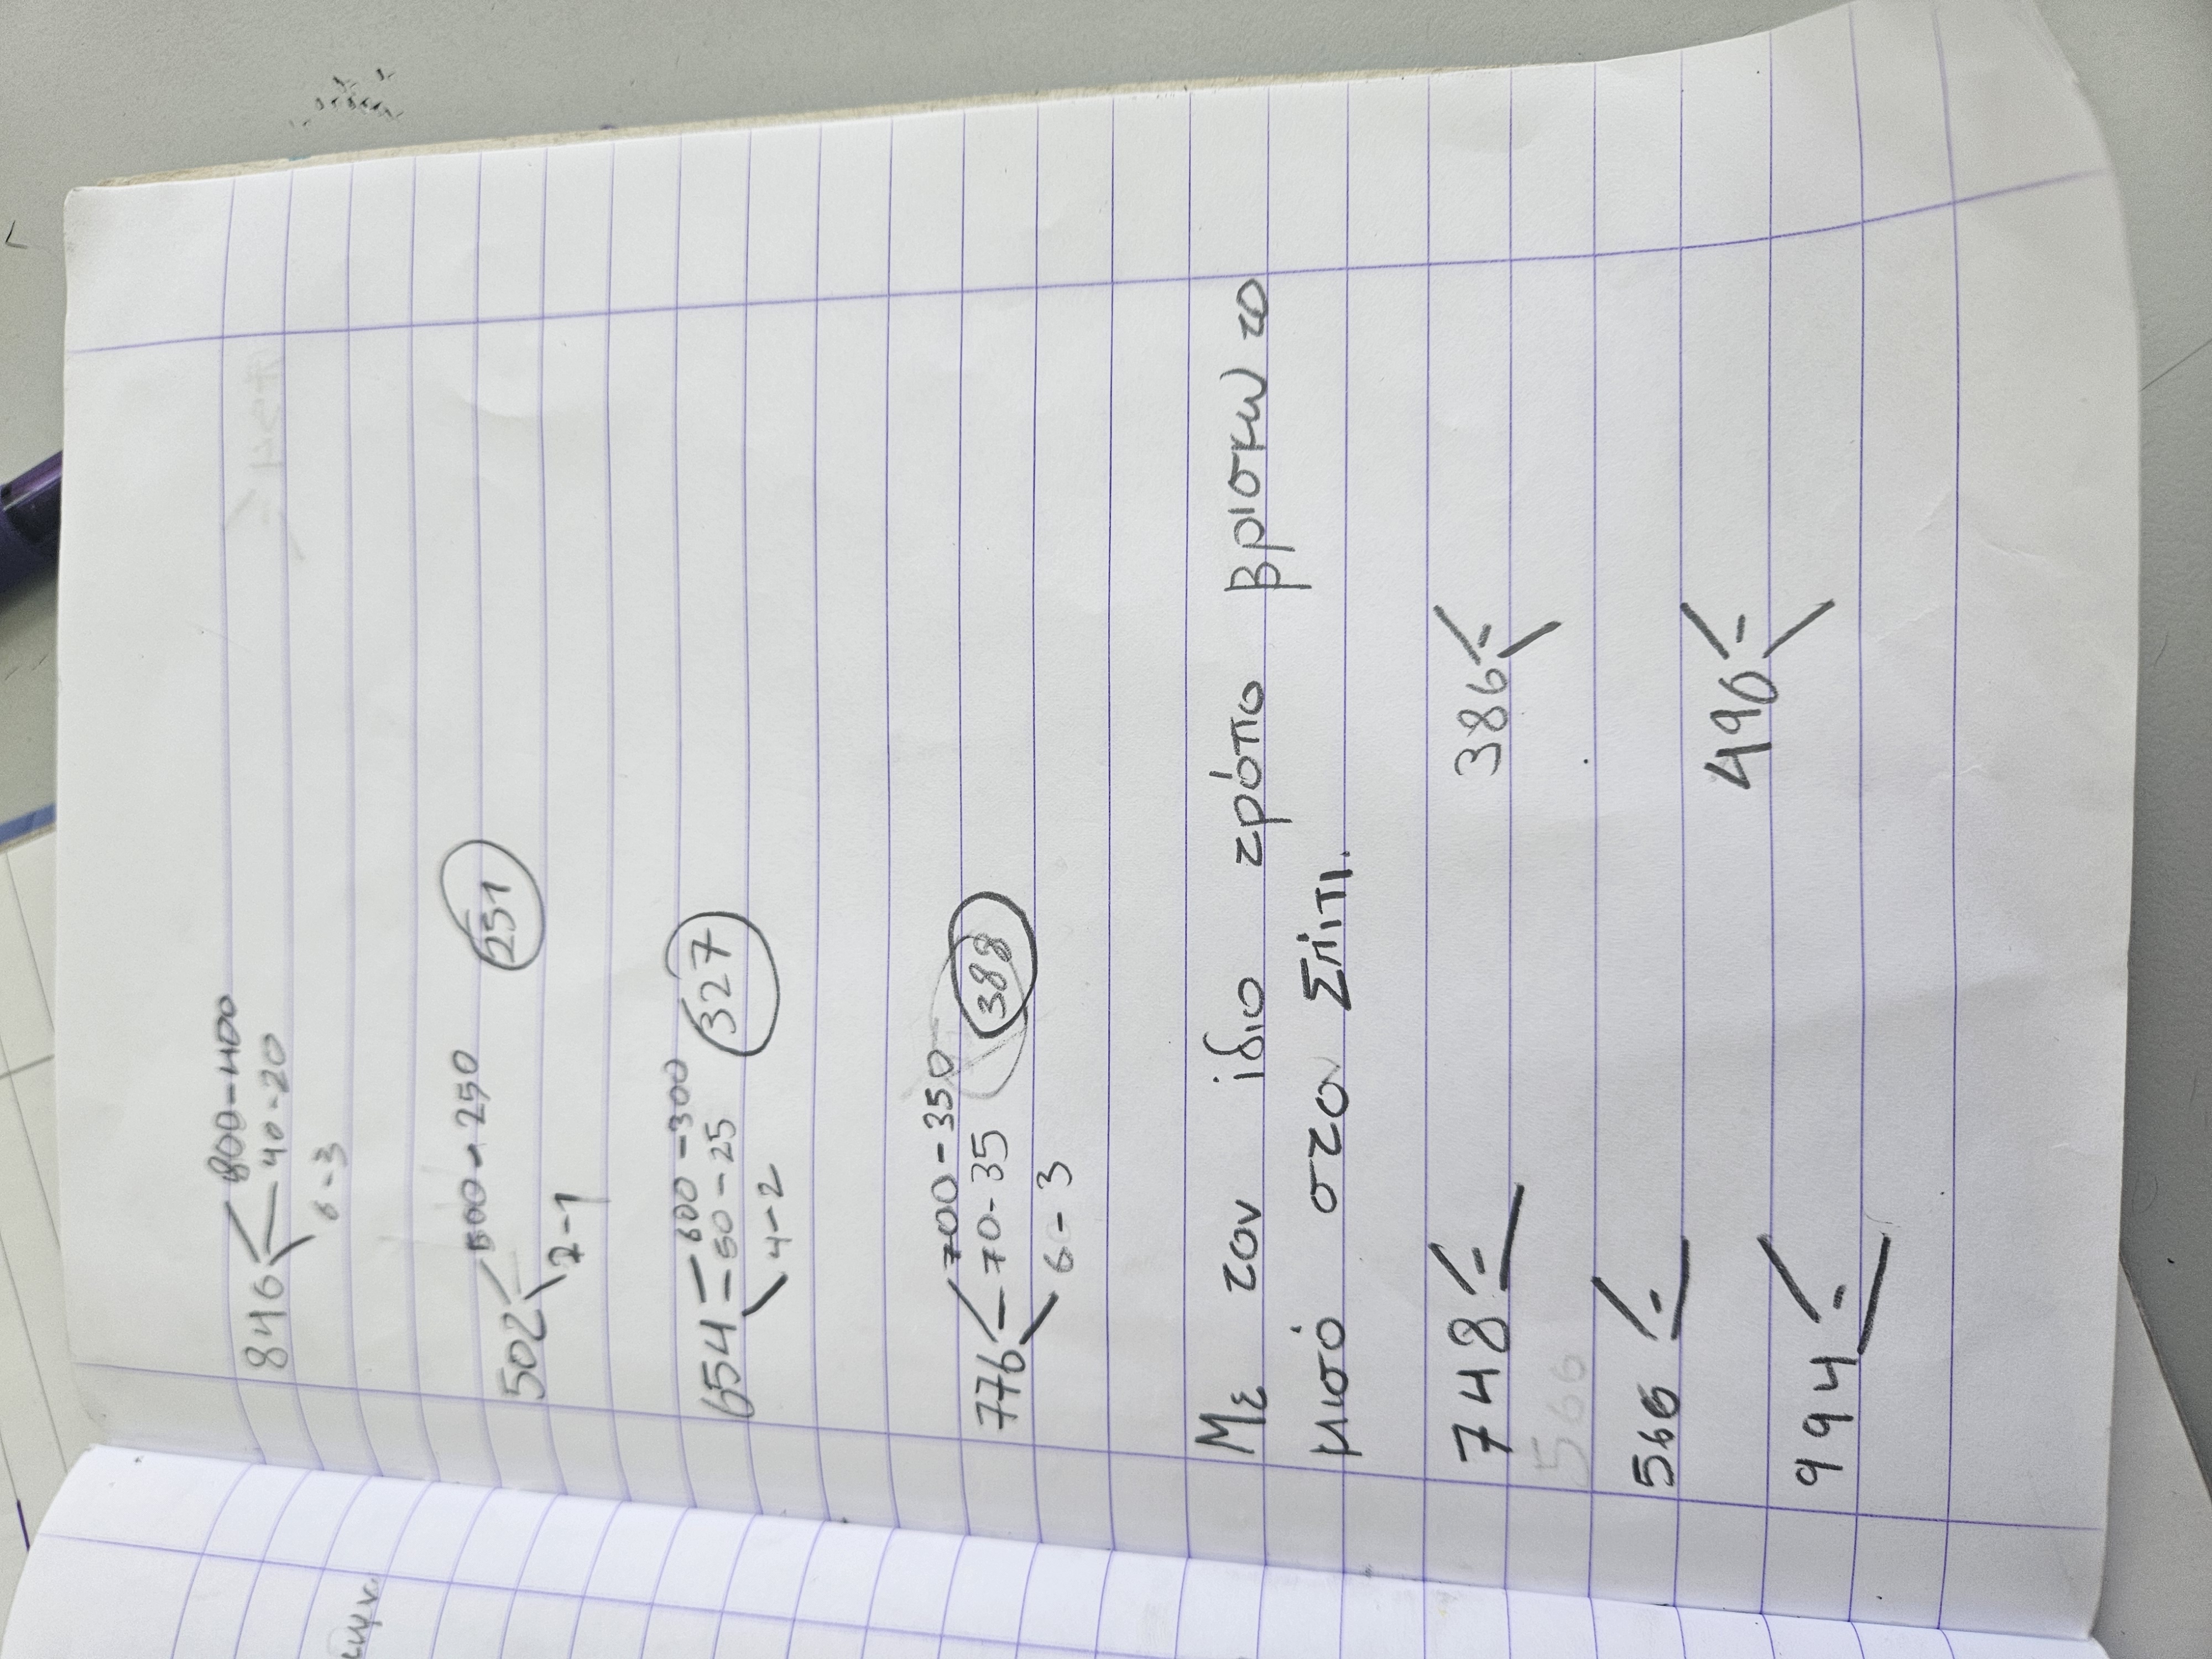 846 800-400
40-20
6-3
502 500-250 251
2-1
654 600-300
50-25 327
4-2
776 700-350
70-35 388
6-3
Με τον ίδιο τρόπο βρισκω το
μισό στον Σπίτι.
748 386
566
566 490
994